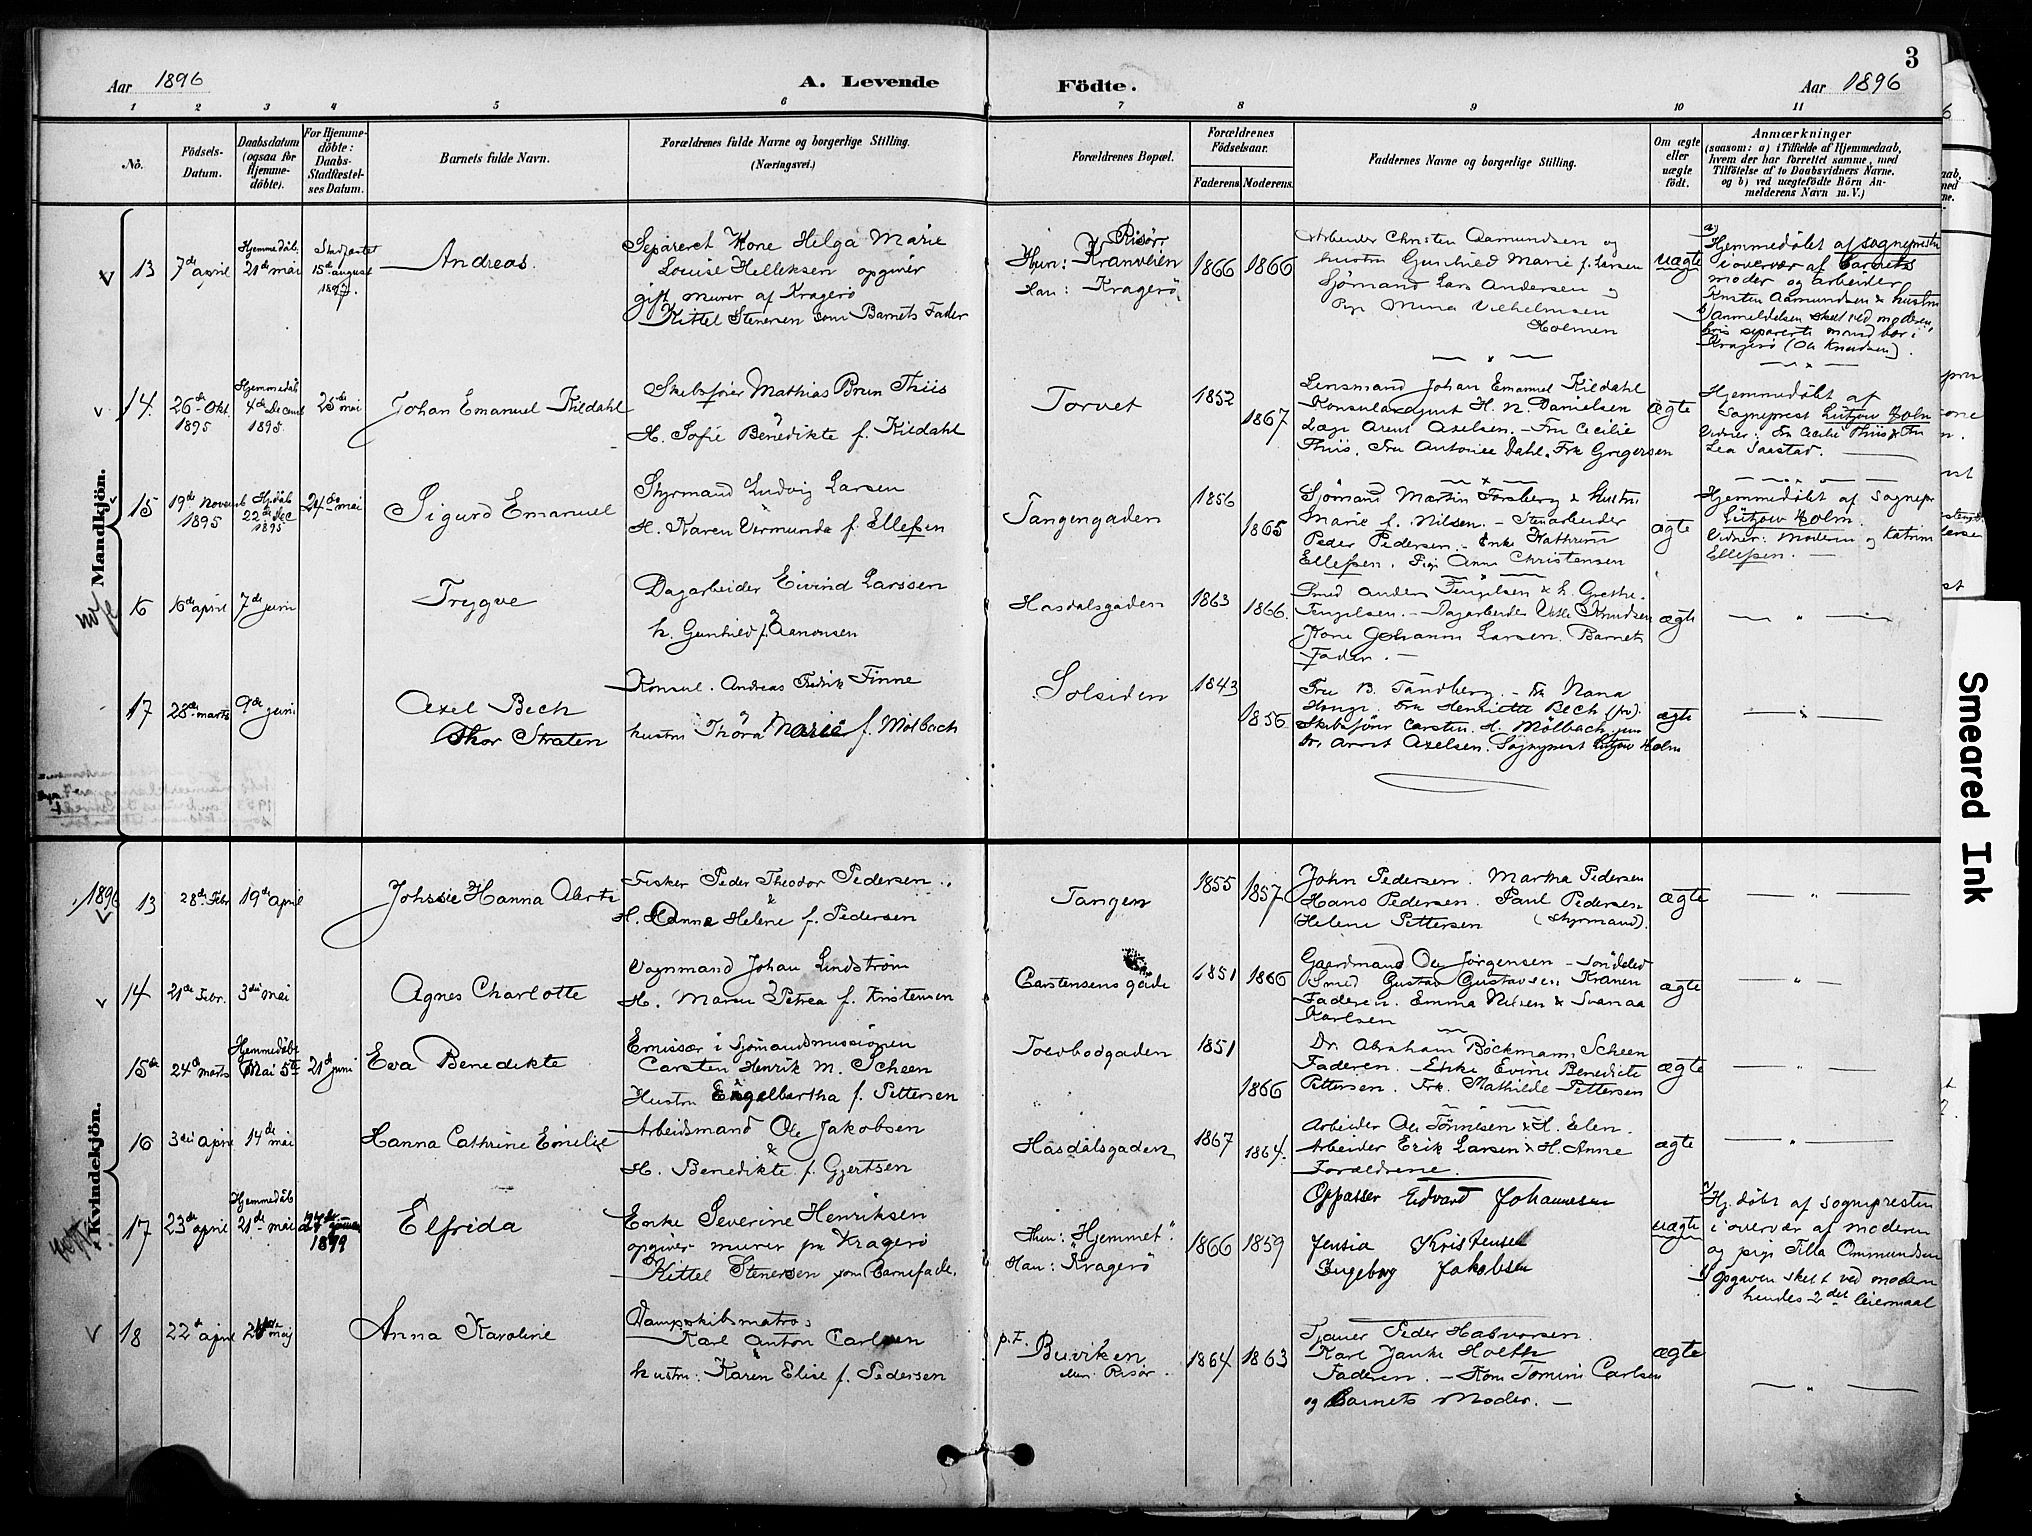 3
Aar 1896
A. Levende
Födte.
Aar 1896
1 2 3 4 5 6 7 8 9 10 11
Nö.
Födsels-Datum.
Daabsdatum (ogsaa for Hjemmedöbte).
For Hjemmedöbte: Daabs-Stadfæstelses Datum.
Barnets fulde Navn.
Forældrenes fulde Navne og borgerlige Stilling.
(Næringsvei.)
Forældrenes Bopæl.
Forældrenes Födselsaar.
Faderens. Moderens.
Faddernes Navne og borgerlige Stilling.
Om ægte eller uægte födt.
Anmærkninger
(saasom: a) i Tilfælde af Hjemmedaab,
hvem der har forrettet samme, med
Tilföielse af to Daabsvidners Navne.
og b) ved uægtefödte Börn Anmelderens Navn m. V.)
Mandkjön.
13 7de april
Hjemmedåb. 21de mai
Stadfæstet 15de august 1897.
Andreas.
Separeret Kone Helga Marie
Louise Helleksen opgiver
gift murer af Kragerö
Kittel Stenersen som Barnets Fader
Risör.
Hun: Kranveien
Han: Kragerö
1866 1866
Arbeider Christen Aamundsen og
hustru Gunhild Marie f. Larsen
Sjömand Lars Andersen og
Pige Mina Vilhelmsen
Holmen
uægte
a) Hjemmedöbt af sogneprestn
i overvær af barnets
moder og arbeider
Kristen Aamundsen & hustru
b) Anmeldelsen skeet ved moderen,
hvis separerte mand bor i
Kragerö (Ole Knudsen).
14. 26de Okt. 1895
Hjemmedåb 4de Decemb 1895.
25de mai
Johan Emanuel Kildahl
Skibsförer Mathias Brun Thiis
&
H. Sofie Benedikte f. Kildahl
Torvet
1852
1867
Lensmand Johan Emanuel Kildahl
Konsul H. N. Danielsen
Læge Arent Axelsen. - Fru Cecilie
Thiis. Fru Antonie Dahl. Frk Gregersen
ægte
Hjemmedöbt af
Sogneprest Lützow Holm
Vidner: Fru Cecilie Thiis & Fru
Lea Saastad.
15 19de Novemb 1895
Hjdåb 22de Dec 1895
24de mai
Sigurd Emanuel
Styrmand Ludvig Larsen
H. Karen Vermunda f. Ellefsen
Tangengaden
1856
1865
Sjömand Martin Forsberg & hustru
Marie f. Nilsen. - Stenarbeider
Peder Pedersen. - Enke Kathrine
Ellefsen. Pige Anna Christensen
ægte
Hjemmedöbt af Sognepr
Lützow Holm.
Vidner: Moderen og Katrine
Ellefsen.
16 16de april 7de juni
Trygve
Dagarbeider Eivind Larssen
&
h. Gunhild f. Aanonsen
Hasdalsgaden
1863
1866.
Smed Anders Tengelsen & h. Grethe
Tengelsen. - Dagarbeider Vetle Knudsen
Kone Johanne Larsen. Barnets
Fader.
ægte
17 28de marts 9de juni
Axel Bech
Thor Straten
Konsul. Andreas Fredrik Finne
&
hustru Thora Marie f. Mölbach
Solsiden
1843
1856
Fru B. Tandberg. - Frk Nana
Fru Henriette Bech
Skibsförer Carsten H. Mölbach jun
Dr. Arent Axelsen. Sogneprest Lützow Holm
ægte
Kvindekjön.
1896
13 28de Febr 19de april
Johssie Hanna Alerte
Fisker Peder Theodor Pedersen
&
H. Hanna Helene f. Pedersen
Tangen
1855 1857
John Pedersen. Martha Pedersen
Hans Pedersen. Paul Pedersen
Helene Pettersen (styrmand).
ægte
14 21de Febr. 3die mai
Agnes Charlotte
Vognmand Johan Lindström
&
H. Maren Petrea f. Kristensen
Carstensensgade
1851 1866
Gaardmand Ole Jörgensen - Söndeled
Smed Gustav Gustavsen Kranen
Faderen. Emma Nilsen & Svanaa
Karlsen
ægte
15de 24de marts
Hjemmedöbt Mai 5te
21de juni
Eva Benedikte
Emissær i Sjömandsmissionen
Carsten Henrik M. Scheen
&
Hustru Engelbartha f. Pettersen
Toldbodgaden
1851
1866
Dr. Abraham Böckmann Scheen
Faderen. - Enke Evine Benedicte
Pettersen. Frk. Mathilde Pettersen
ægte
16 3die April 14de mai
Hanna Cathrine Emelie
Arbeidsmand Ole Jakobsen
&
H. Benedikte f. Gjertsen
Hasdalsgaden
1867
1864.
Arbeider Ole Tönnesen & H. Elen.
Arbeider Erik Larsen & H. Anne
Forældrene.
ægte
17 23de april
Hjemmedåb 21de mai
1899
Elfrida
Enke Severine Henriksen
opgiver murer fra Kragerö
Kittel Stenersen som Barnefader.
Hun: "Hjemmet".
Han: Kragerö
1866 1859
Oppasser Edvard Johannesen
Jensia Kristensen
Ingeborg Jakobsen
uægte
Hj. döbt af sognepresten
i overvær af moderen
og pige Tilla Ommundsen
Opgaven skeet ved modern
hendes 2det leiermaal
18 22de april mai
Anna Karoline
Dampskibsmatros
Karl Anton Carlsen
&
hustru: Karen Elise f. Pedersen
p.t. Buviken
Risör.
1864 1863
Tjener Peder Halvorsen.
Karl Janke Holth
Faderen. - Kone Tomine Carlsen
og Barnets Moder.
ægte
Smeared Ink